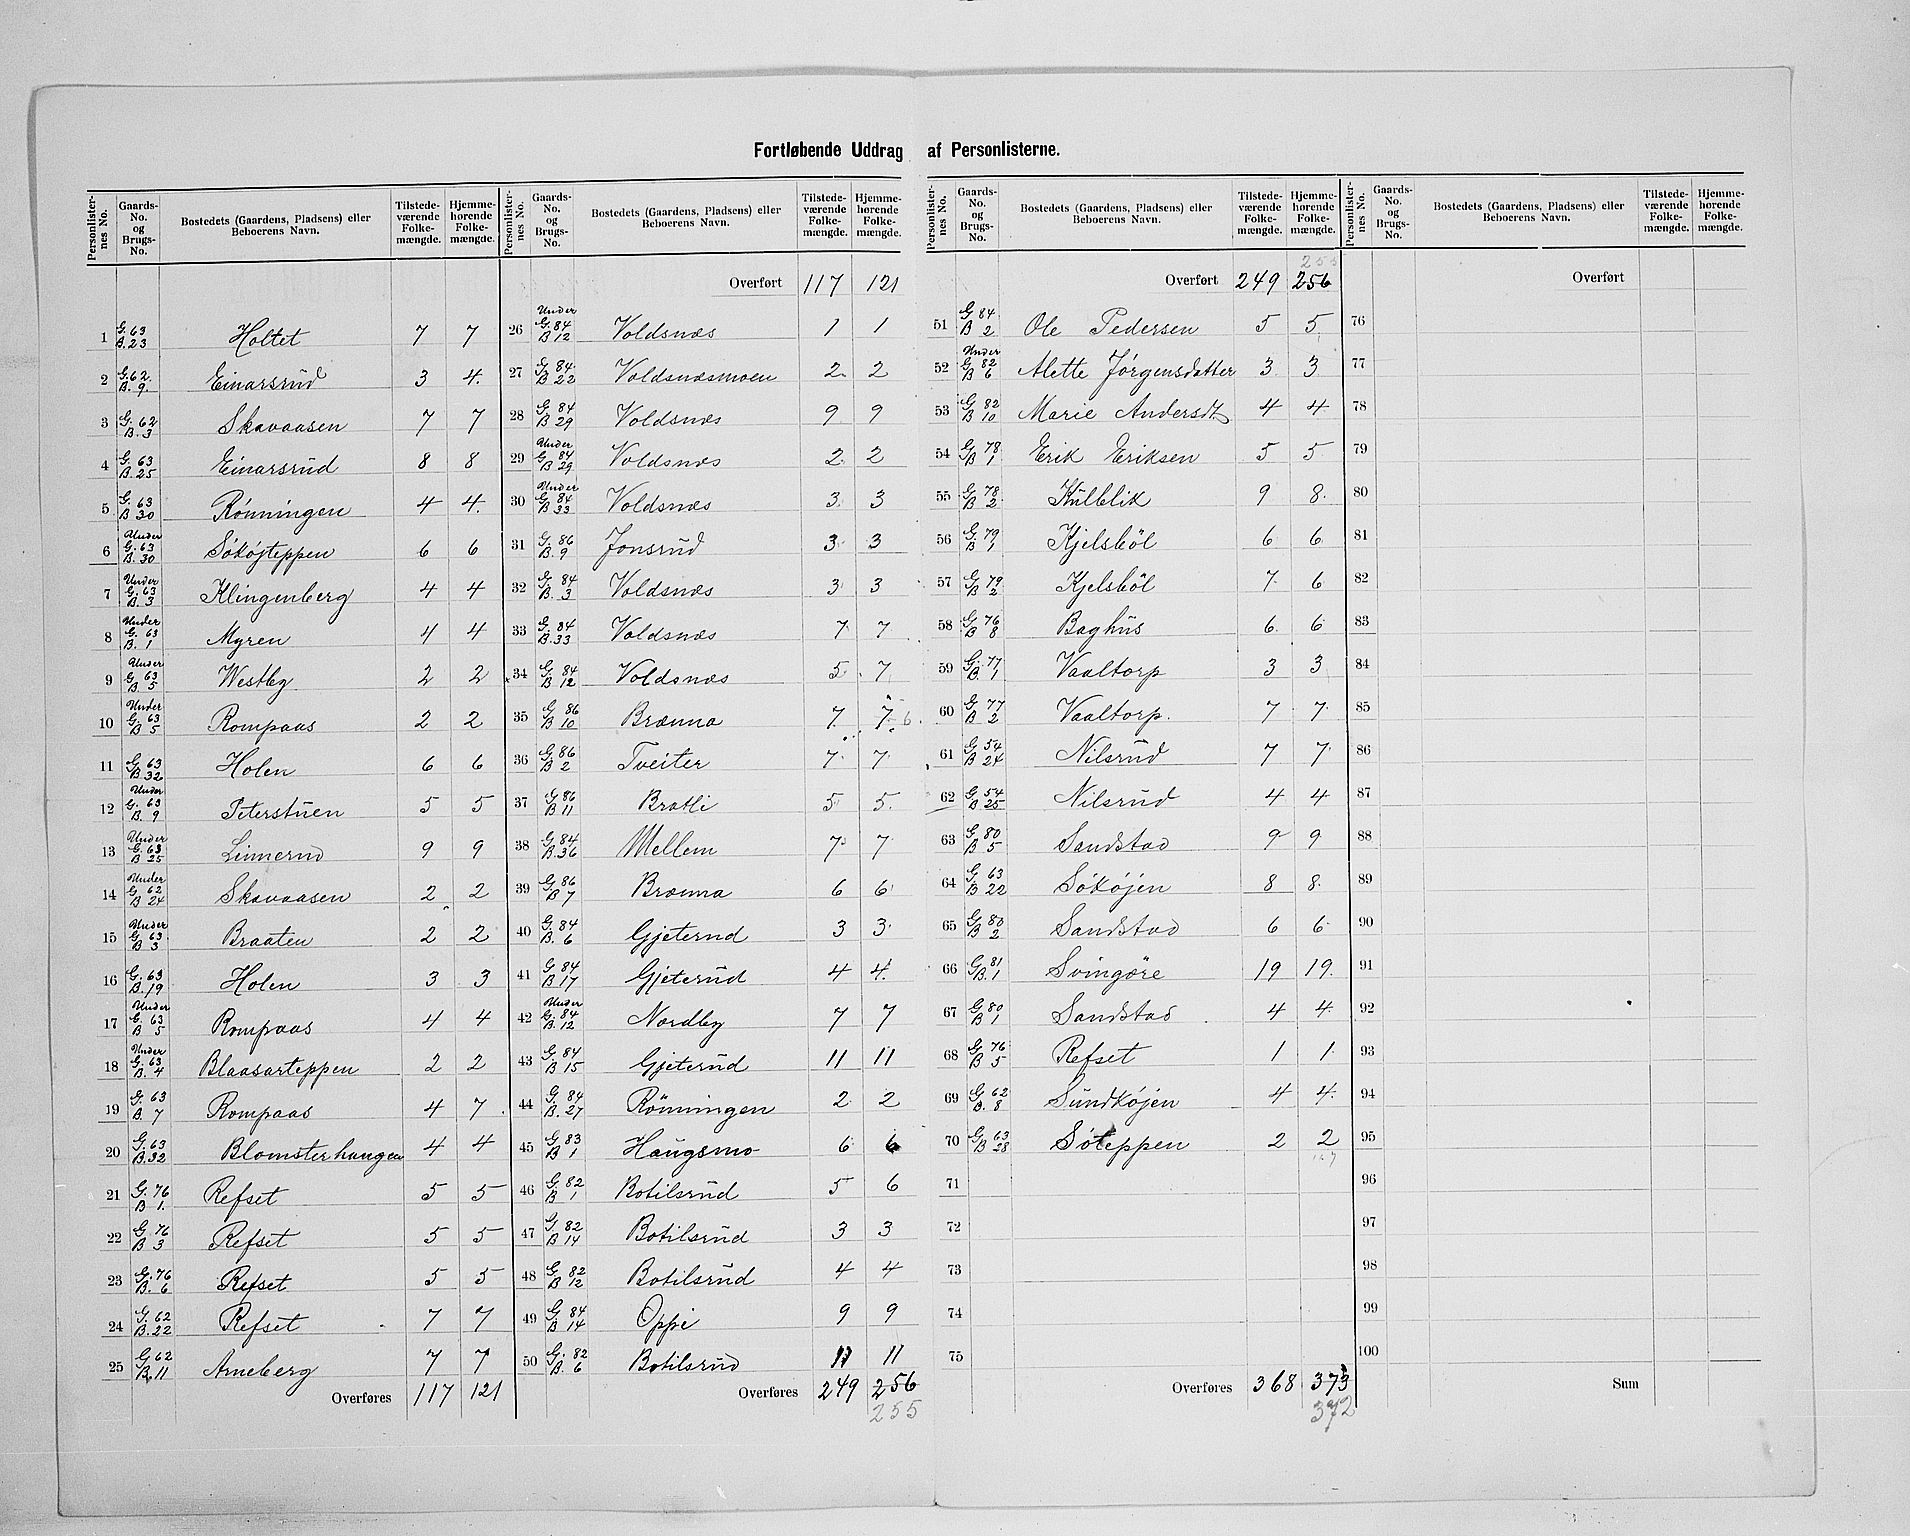 Fortløbende Uddrag af Personlisterne.
Personlister-nes No. | Gaards-No. og Brugs-No. | Bostedets (Gaardens, Pladsens) eller Beboerens Navn. | Tilstede-værende Folke-mængde. | Hjemme-hørende Folke-mængde.
1 G. 63 B. 23 Holtet 7 7
2 G. 62. B. 9 Einarsrud 3 4.
3 G. 62 B. 3 Skavaasen 7 7
4 G. 63 B. 25 Einarsrud 8 8
5 G. 63 B 30 Rønningen 4 4.
6 Under G. 63 B. 30 Søkøjteppen 6 6
7 Under G. 63 B. 3 Klingenberg 4 4
8 Under G. 63 B. 1 Myren 4 4
9 Under G. 63 B. 5 Westby 2 2
10 Under G. 63 B 5 Rompaas 2 2
11 G. 63 B. 32 Holen 6 6
12 Under G. 63 B. 9 Peterstuen 5 5
13 Under G. 63 B 25 Linnerud 9 9
14 Under G. 62 B 24 Skavaasen 2 2
15 Under G. 63 B 3 Braaten 2 2
16 G. 63 B. 19 Holen 3 3
17 Under G. 63 B 5 Rompaas 4 4
18 Under G. 63 B. 4 Blaasarteppen 2 2
19 G. 63 B 7 Rompaas 4 7
20 G. 63 B. 32 Blomsterhaugen 4 4
21 G. 76 B 1. Refset 5 5
22 G. 76 B 3 Refset 5 5
23 G. 76 B. 6 Refset 5 5
24 G. 62 B. 22 Refset 7 7
25 G. 62 B. 11 Arneberg 7 7
Overføres 117 121
Personlister-nes No. | Gaards-No. og Brugs-No. | Bostedets (Gaardens, Pladsens) eller Beboerens Navn. | Tilstede-værende Folke-mængde. | Hjemme-hørende Folke-mængde.
Overført 117 121
26 Under G. 84 B 12 Voldsnæs 1 1
27 G. 84 B 22 Voldsnæsmoen 2 2
28 G. 84 B 29 Voldsnæs 9 9
29 Under G 84 B 29 Voldsnæs 2 2
30 Under G 84 B 33 Voldsnæs 3 3
31 G. 86 B. 9 Jonsrud 3 3
32 G. 84 B. 3 Voldsnæs 3 3
33 G. 84 B. 33 Voldsnæs 7 7
34 G. 84 B 12 Voldsnæs 5 7
35 G. 86 B 10 Brænna 7 7 6
36 G. 86 B 2 Tveiter 7 7
37 G. 86 B 11 Bratli 5 5.
38 G. 84 B. 36 Mellem 7 7
39 G. 86 B 7 Brænna 6 6
40 G. 84 B. 6 Gjeterud 3 3
41 G. 84 B 17 Gjeterud 4 4.
42 Under G. 84 B. 12 Nordby 7 7
43 G. 84 B 15 Gjeterud 11 11
44 G. 84 B. 27 Rönningen 2 2
45 G. 83 B 1 Haugsmo 6 6
46 G. 82 B 1 Botilsrud 5 6
47 G. 82 B 14 Botilsrud 3 3
48 G. 82 B 12 Botilsrud 4 4
49 G. 84 B 14 Oppi 9 9
50 G. 82 B. 6 Botilsrud 11 11
Overføres 249 256
255
Personlister-nes No. | Gaards-No. og Brugs-No. | Bostedets (Gaardens, Pladsens) eller Beboerens Navn. | Tilstede-værende Folke-mængde. | Hjemme-hørende Folke-mængde.
255
Overført 249 256
51 G 84 B 2 Ole Pedersen 5 5
52 Under G 82 B 6 Alette Jørgensdatter 3 3
53 G 82 B 10 Marie Andersdt 4 4
54 G 78 B 1 Erik Eriksen 5 5
55 G. 78 B 2 Kulblik 9 8.
56 G. 79 B 1 Kjelsböl 6 6
57 G. 79 B 2 Kjelsböl 7 6
58 G. 76 B 8 Baghus 6 6
59 G. 77 B. 1 Vaaltorp 3 3
60 G. 77 B 2 Vaaltorp. 7 7
61 G. 54 B 24 Nilsrud 7 7
62 G. 54 B 25 Nilsrud 4 4
63 G. 80 B 5 Sandstad 9 9
64 G. 63 B 22 Søkøjen 8 8.
65 G. 80 B 2 Sandstad 6 6
66 G. 81 B. 1 Svingöre 19 19.
67 G. 80 B 1 Sandstad 4 4.
68 G. 76 B 5 Refset 1 1
69 G. 62 B. 8 Sundkøjen 4 4.
70 G. 63 B 28 Søteppen 2 2
71
72
73
74
75
Overføres 368 373
372
Personlister-nes No. | Gaards-No. og Brugs-No. | Bostedets (Gaardens, Pladsens) eller Beboerens Navn. | Tilstede-værende Folke-mængde. | Hjemme-hørende Folke-mængde.
Overført
76
77
78
79
80
81
82
83
84
85
86
87
88
89
90
91
92
93
94
95
96
97
98
99
100
Sum